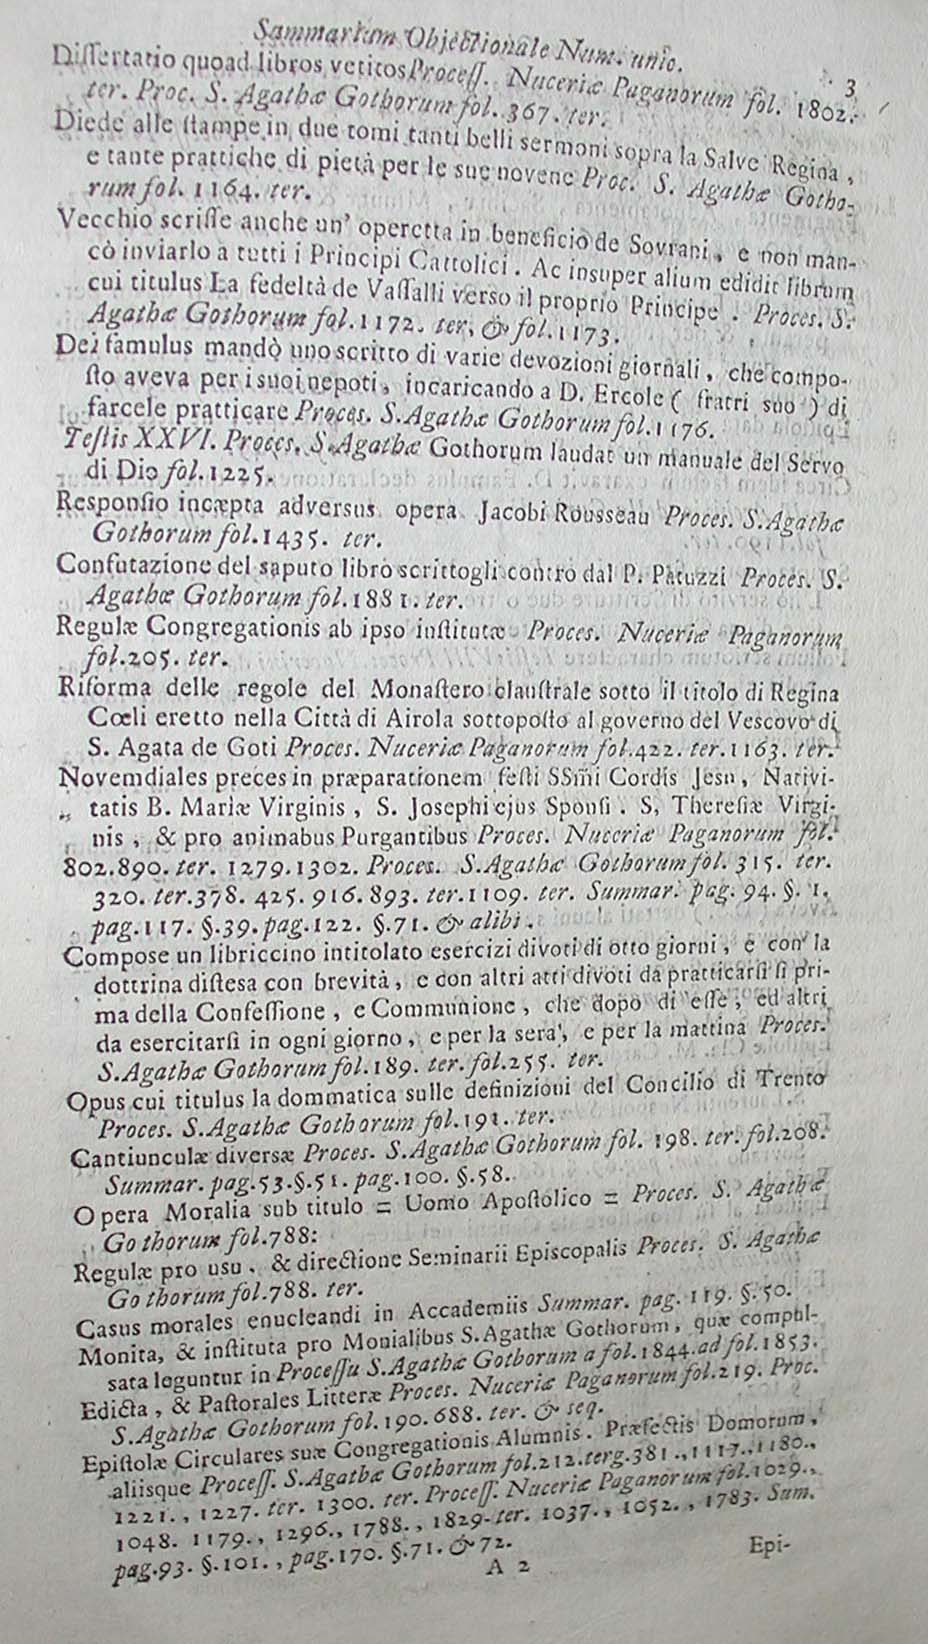 Sammarium Objectionale Num. unic.
3
Dissertatio quoad libros vetitos Process. Nuceriæ Paganorum fol. 1802.
ter. Proc. S. Agathæ Gothorum fol. 367. ter.
Diede alle stampe in due tomi tanti belli sermoni sopra la Salve Regina,
e tante prattiche di pietà per le sue novene Proc. S. Agathæ Gotho-
rum fol. 1164. ter.
Vecchio scrisse anche un' operetta in beneficio de Sovrani, e non man-
cò inviarlo a tutti i Principi Cattolici. Ac insuper alium edidit librum
cui titulus La fedeltà de Vassalli verso il proprio Principe. Proces. S.
Agathæ Gothorum fol. 1172. ter, & fol. 1173.
Dei famulus mandò uno scritto di varie devozioni giornali, che compo-
sto aveva per i suoi nepoti, incaricando a D. Ercole ( fratri suo ) di
farcele pratticare Proces. S. Agathæ Gothorum fol. 1176.
Testis XXVI. Proces. S. Agathæ Gothorum laudat un manuale del Servo
di Dio fol. 1225.
Responsio incæpta adversus opera Jacobi Rousseau Proces. S. Agathæ
Gothorum fol. 1435. ter.
Confutazione del saputo libro scrittogli contro dal P. Patuzzi Proces. S.
Agathæ Gothorum fol. 1881. ter.
Regulæ Congregationis ab ipso institutæ Proces. Nuceriæ Paganorum
fol. 205. ter.
Riforma delle regole del Monastero claustrale sotto il titolo di Regina
Cœli eretto nella Città di Airola sottoposto al governo del Vescovo di
S. Agata de Goti Proces. Nuceriæ Paganorum fol. 422. ter. 1163. ter.
Novemdiales preces in præparationem festi SSmi Cordis Jesu, Nativi-
tatis B. Mariæ Virginis, S. Josephi ejus Sponsi. S, Theresiæ Virgi-
nis, & pro animabus Purgantibus Proces. Nuceriæ Paganorum fol.
802. 890. ter. 1279. 1302. Proces. S. Agathæ Gothorum fol. 315. ter.
320. ter. 378. 425. 916. 893. ter. 1109. ter. Summar. pag. 94. §. 1.
pag. 117. §. 39. pag. 122. §. 71. & alibi.
Compose un libriccino intitolato esercizi divoti di otto giorni, e con la
dottrina distesa con brevità, e con altri atti divoti da pratticarsi sì pri-
ma della Confessione, e Communione, che dopo di esse, ed altri
da esercitarsi in ogni giorno, e per la sera, e per la mattina Proces.
S. Agathæ Gothorum fol. 189. ter. fol. 255. ter.
Opus cui titulus la dommatica sulle definizioni del Concilio di Trento
Proces. S. Agathæ Gothorum fol. 191. ter.
Cantiunculæ diversæ Proces. S. Agathæ Gothorum fol. 198. ter. fol. 208.
Summar. pag. 53. §. 51. pag. 100. §. 58.
Opera Moralia sub titulo = Uomo Apostolico = Proces. S. Agathæ
Gothorum fol. 788:
Regulæ pro usu, & directione Seminarii Episcopalis Proces. S. Agathæ
Gothorum fol. 788. ter.
Casus morales enucleandi in Accademiis Summar. pag. 119. §. 50.
Monita, & instituta pro Monialibus S. Agathæ Gothorum, quæ compul-
sata leguntur in Processu S. Agathæ Gothorum a fol. 1844. ad fol. 1853.
Edicta, & Pastorales Litteræ Proces. Nuceriæ Paganorum fol. 219. Proc.
S. Agathæ Gothorum fol. 190. 688. ter. & seq.
Epistolæ Circulares suæ Congregationis Alumnis. Præfectis Domorum,
aliisque Process. S. Agathæ Gothorum fol. 212. terg. 381., 1117., 1180.,
1221., 1227. ter. 1300. ter. Process. Nuceriæ Paganorum fol. 1029.,
1048. 1179., 1296., 1788., 1829. ter. 1037., 1052., 1783. Sum.
pag. 93. §. 101., pag. 170. §. 71. & 72.
A 2
Epi-